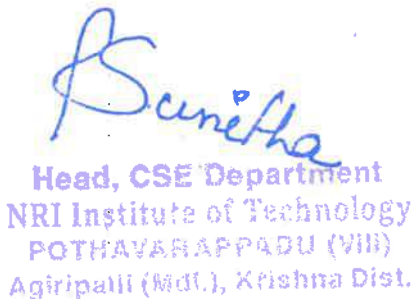 PSunitha
Head, CSE Department
NRI Institute of Technology
POTHAVARAPPADU (Vill)
Agiripalli (Mdl.), Krishna Dist.